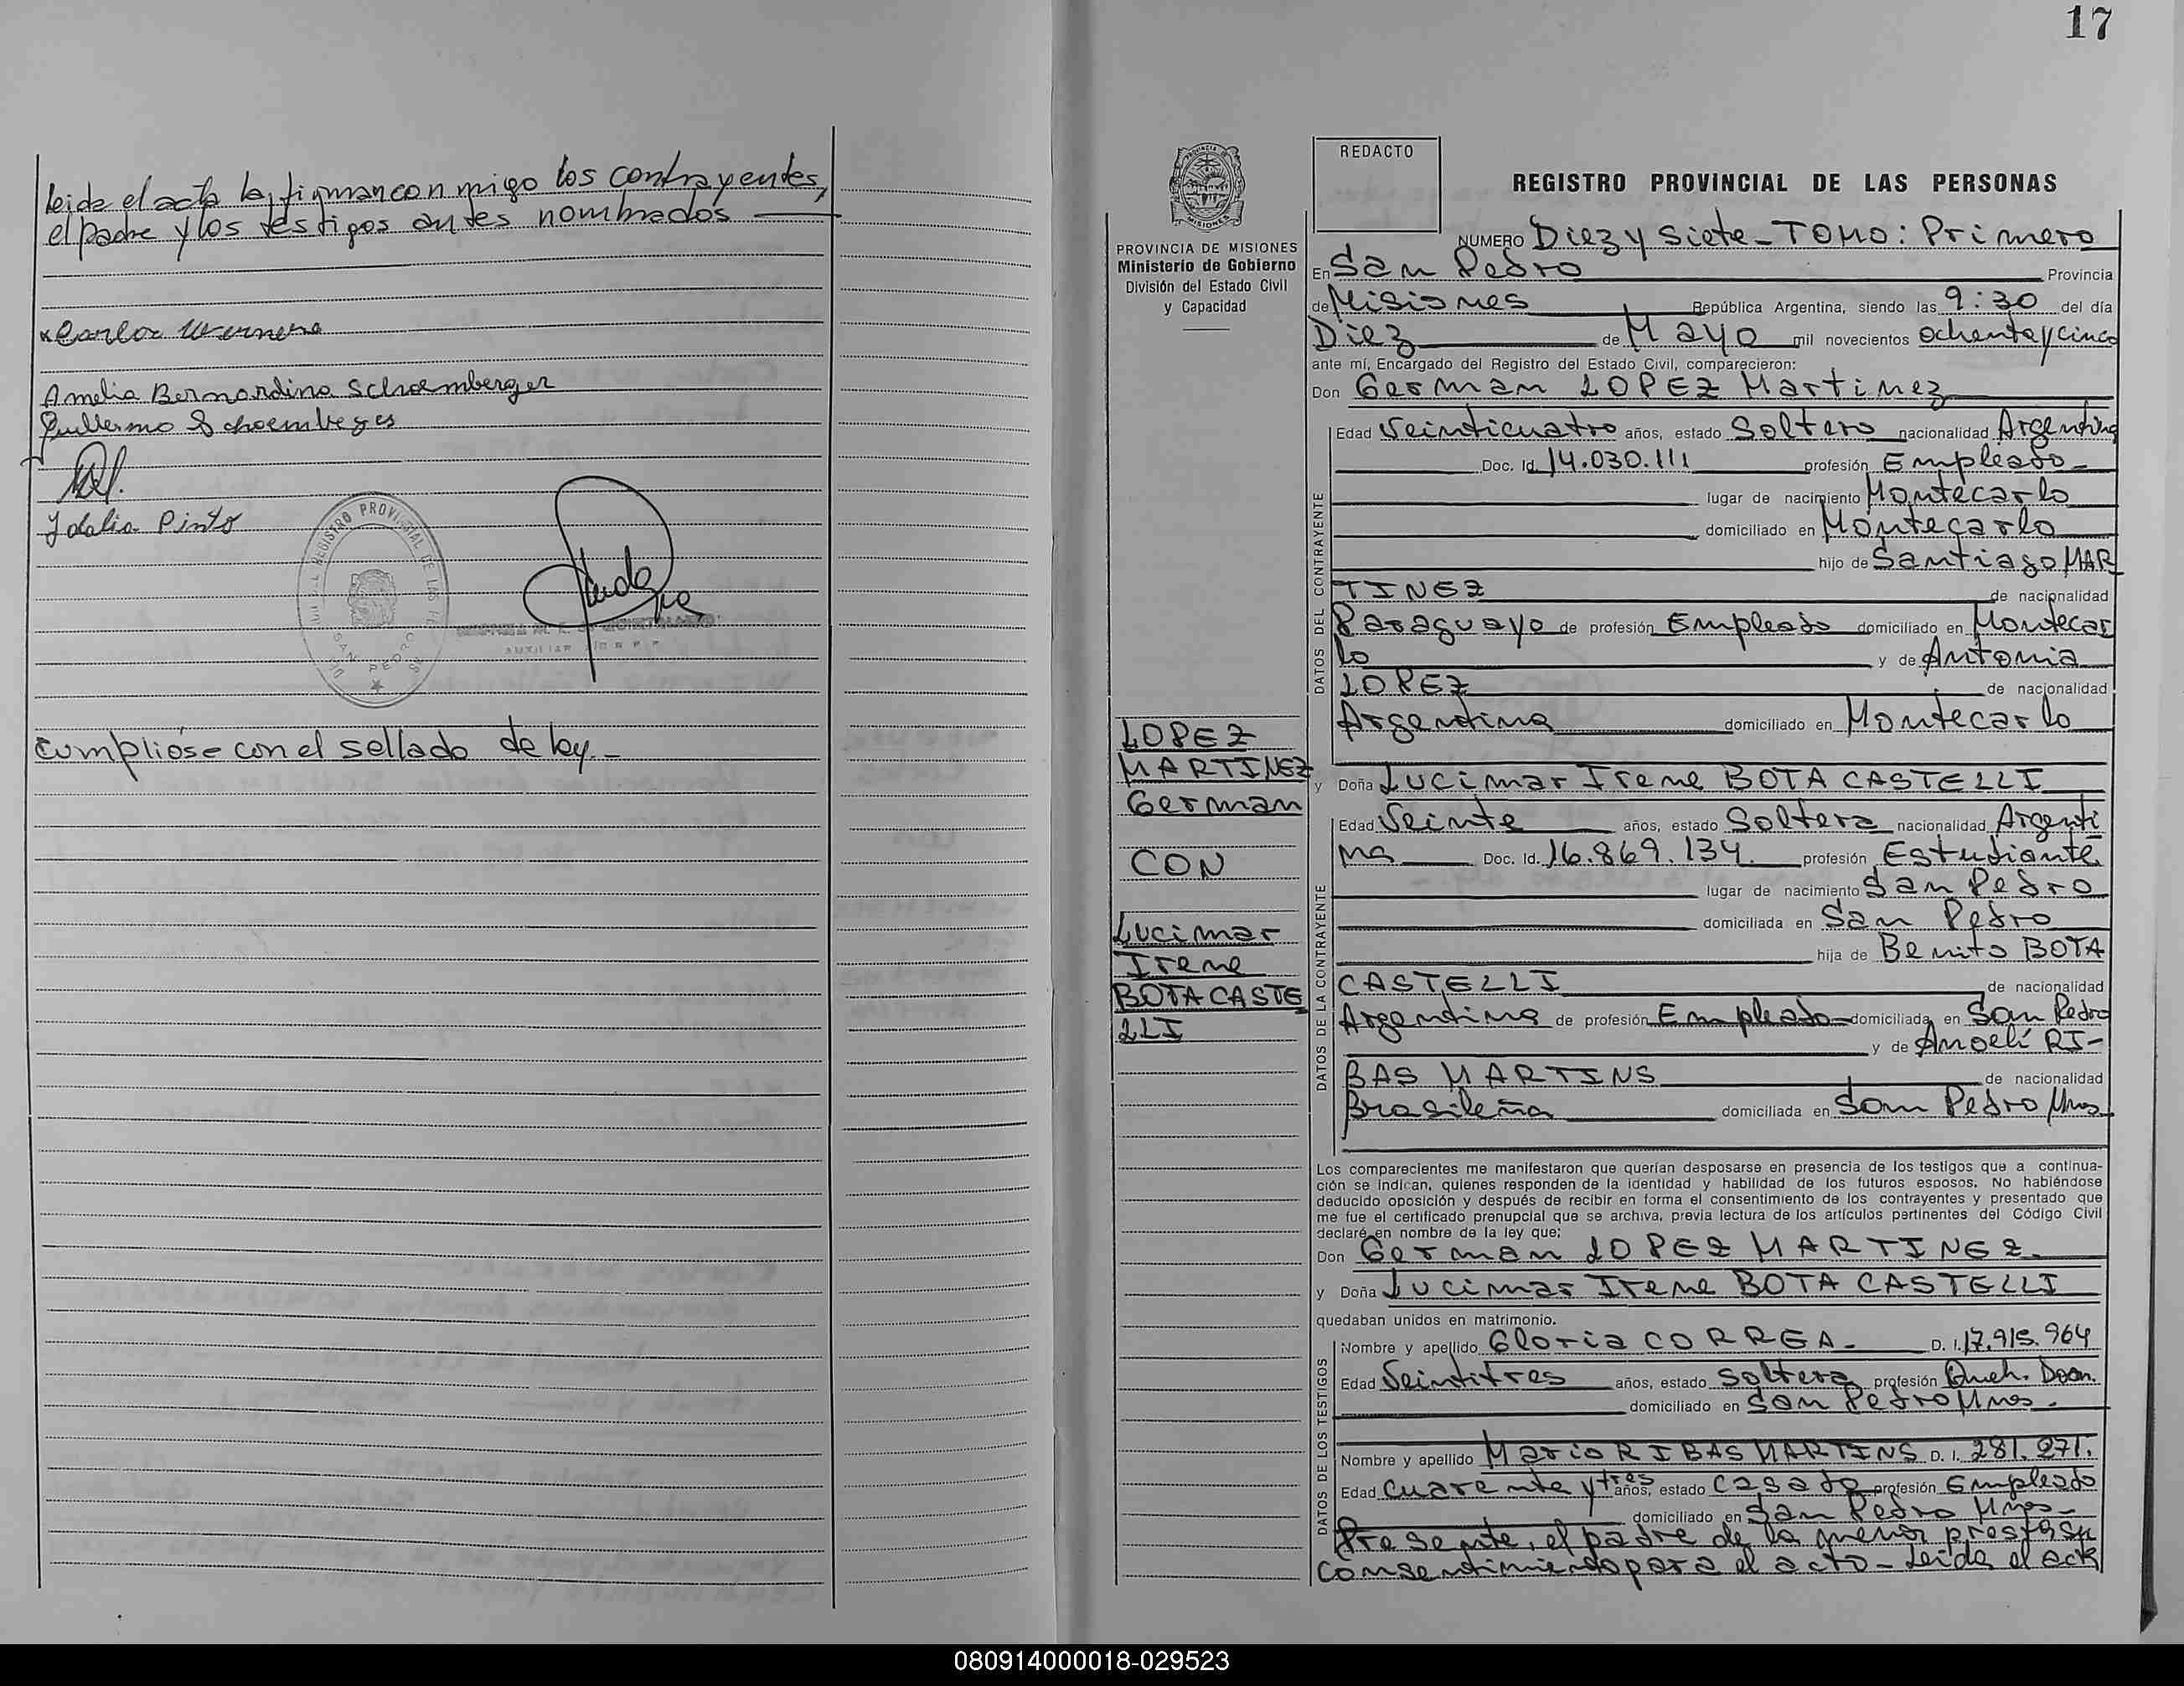 leida el acta la firman conmigo los contrayentes,
el padre y los testigos antes nombrados
Amelia Bernardina Schoemberger
Guillermo Schoemberger
Idalia Pinto
REGISTRO PROVINCIAL DE LAS
SAN PEDRO
cumpliose con el sellado de ley.-
17
PROVINCIA DE MISIONES
Ministerio de Gobierno
División del Estado Civil
y Capacidad
LOPEZ
MARTINEZ
German
CON
Lucimar
Irene
BOTA CASTE
LLI
REDACTO
REGISTRO PROVINCIAL DE LAS PERSONAS
NUMERO Diez y Siete - TOMO: Primero
En San Pedro Provincia
de Misiones República Argentina, siendo las 9:30 del día
Diez de Mayo mil novecientos ochenta y cinco
ante mí, Encargado del Registro del Estado Civil, comparecieron:
Don German LOPEZ Martinez
Edad Veinticuatro años, estado Soltero nacionalidad Argentina
Doc. Id. 14.030.111 profesión Empleado
lugar de nacimiento Montecarlo
domiciliado en Montecarlo
DATOS DEL CONTRAYENTE
hijo de Santiago MAR
TINEZ de nacionalidad
Paraguayo de profesión Empleado domiciliado en Montecar
lo y de Antonia
LOPEZ de nacionalidad
Argentina domiciliado en Montecarlo
y Doña Lucimar Irene BOTA CASTELLI
Edad Veinte años, estado Soltera nacionalidad Argenti
na Doc. Id. 16.869.134. profesión Estudiante
lugar de nacimiento San Pedro
domiciliada en San Pedro
DATOS DE LA CONTRAYENTE
hija de Benito BOTA
CASTELLI de nacionalidad
Argentina de profesión Empleado domiciliada en San Pedro
y de Anoeli RI-
BAS MARTINS de nacionalidad
Brasileña domiciliada en San Pedro Mnes
Los comparecientes me manifestaron que querían desposarse en presencia de los testigos que a continua-
ción se indican, quienes responden de la identidad y habilidad de los futuros esposos. No habiéndose
deducido oposición y después de recibir en forma el consentimiento de los contrayentes y presentado que
me fue el certificado prenupcial que se archiva, previa lectura de los artículos pertinentes del Código Civil
declaré en nombre de la ley que:
Don German LOPEZ MARTINEZ.
y Doña Lucimar Irene BOTA CASTELLI
quedaban unidos en matrimonio.
DATOS DE LOS TESTIGOS
Nombre y apellido Gloria CORREA - D. I. 17.915.964
Edad Veintitres años, estado Soltera profesión Queh. Dom.
domiciliado en San Pedro Mnes.
Nombre y apellido Mario RIBAS MARTINS D. I. 281.271.
Edad cuarenta y tres años, estado casado profesión Empleado
domiciliado en San Pedro Mnes-
Presente, el padre de la menor presta su
consentimiento para el acto - Leida el acta
080914000018-029523